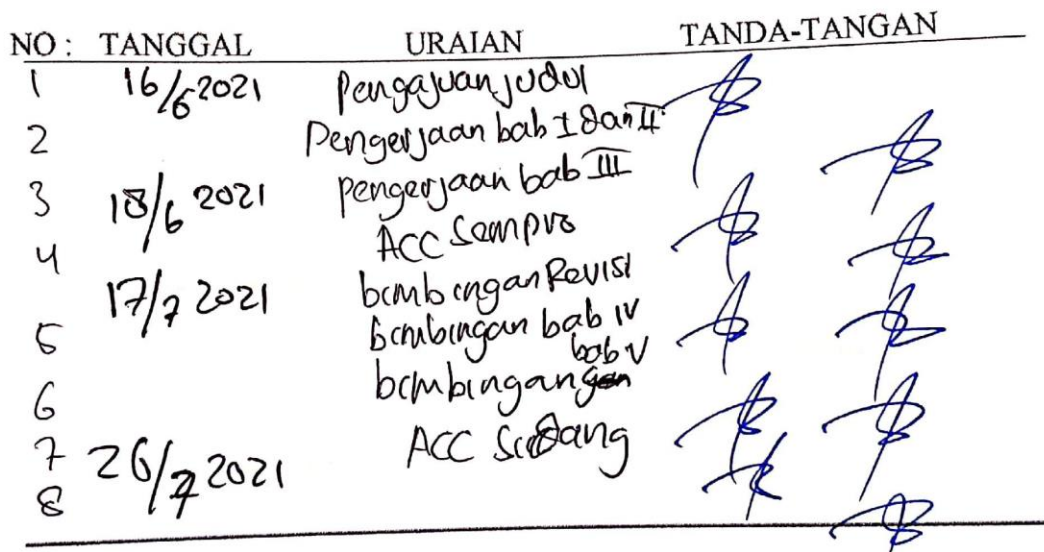 NO : TANGGAL URAIAN TANDA-TANGAN
1 16/6 2021 Pengajuan judul
2 Pengerjaan bab I dan II
3 18/6 2021 pengerjaan bab III
4 ACC Sempro
17/7 2021 bimbingan Revisi
5 bimbingan bab IV
bab V
6 bimbingan
7 26/7 2021 ACC Sidang
8